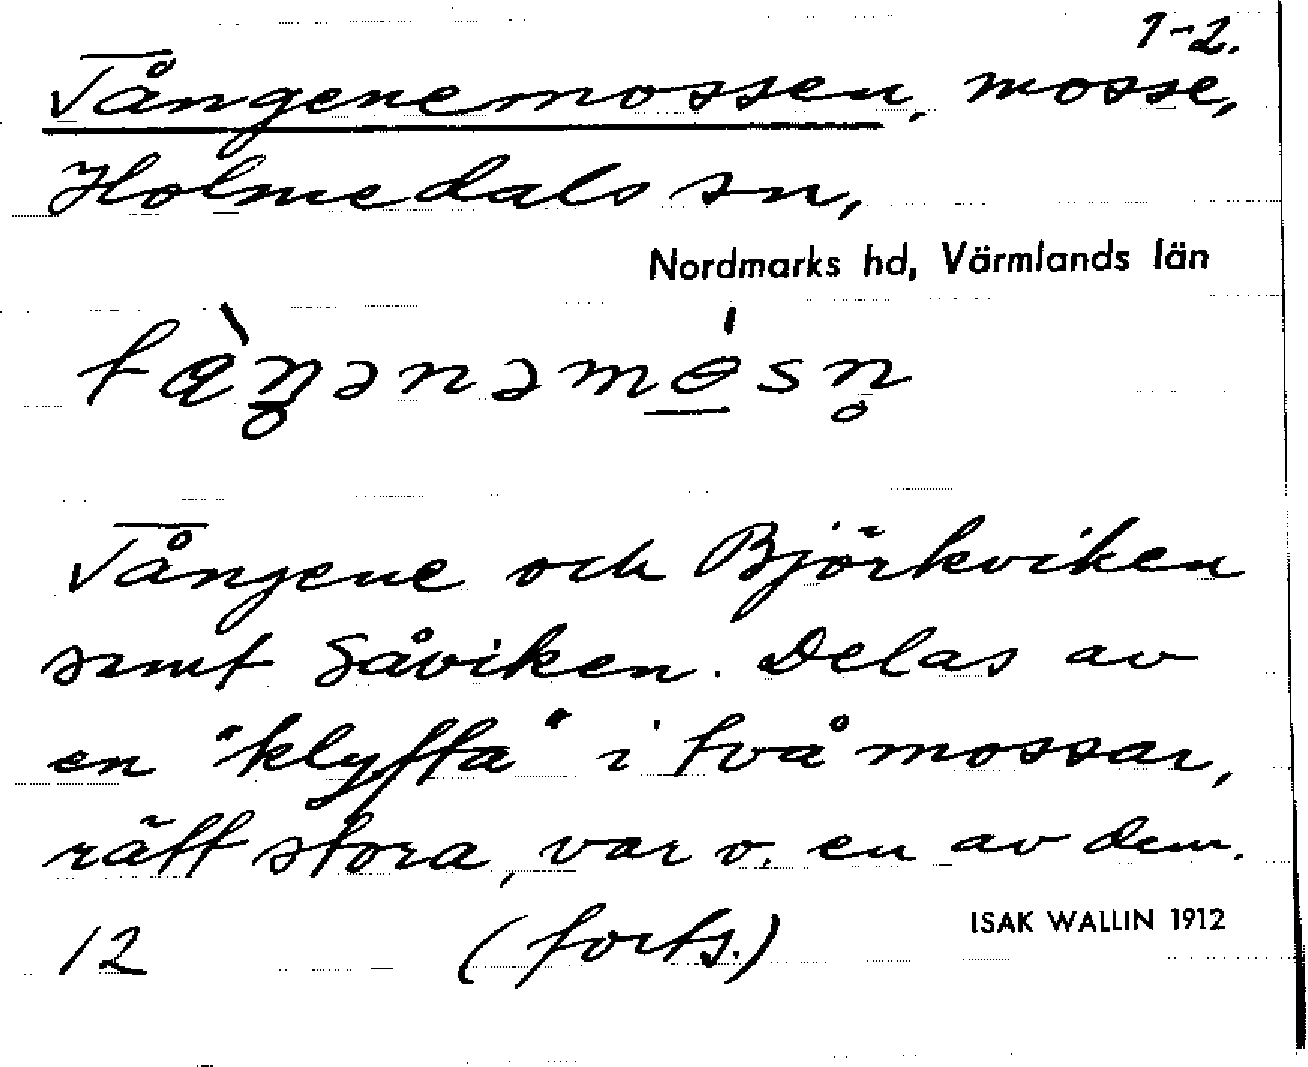 1-2.
Tångenemossen, mosse,
Holmedals sn,
Nordmarks hd, Värmlands län
Tångene och Björkviken
samt Såviken. Delas av
en "klyfta" i två mossar,
rätt stora, var o. en av dem.
12 (forts.)
ISAK WALLIN 1912